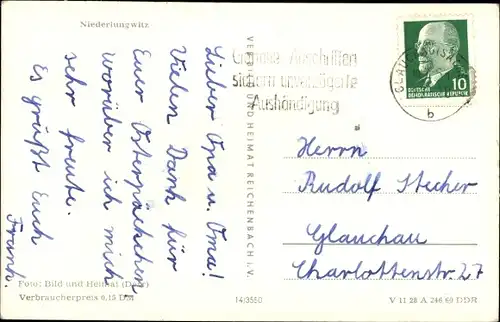 Niederlungwitz
Lieber Opa u. Oma!
Vielen Dank für
Euer Osterpäckchen,
worüber ich mich
sehr freute.
Es grüßt Euch
Frank.
Foto: Bild und Heimat
Verbraucherpreis 0,15 DM
14/3550
VERLAG BILD UND HEIMAT REICHENBACH i. V.
Genaue Anschriften
sichern unverzögerte
Aushändigung
GLAUCHAU
b
10
DEUTSCHE
DEMOKRATISCHE REPUBLIK
Herrn
Rudolf Stecher
Glauchau
Charlottenstr. 27
V 11 28 A 246 60 DDR